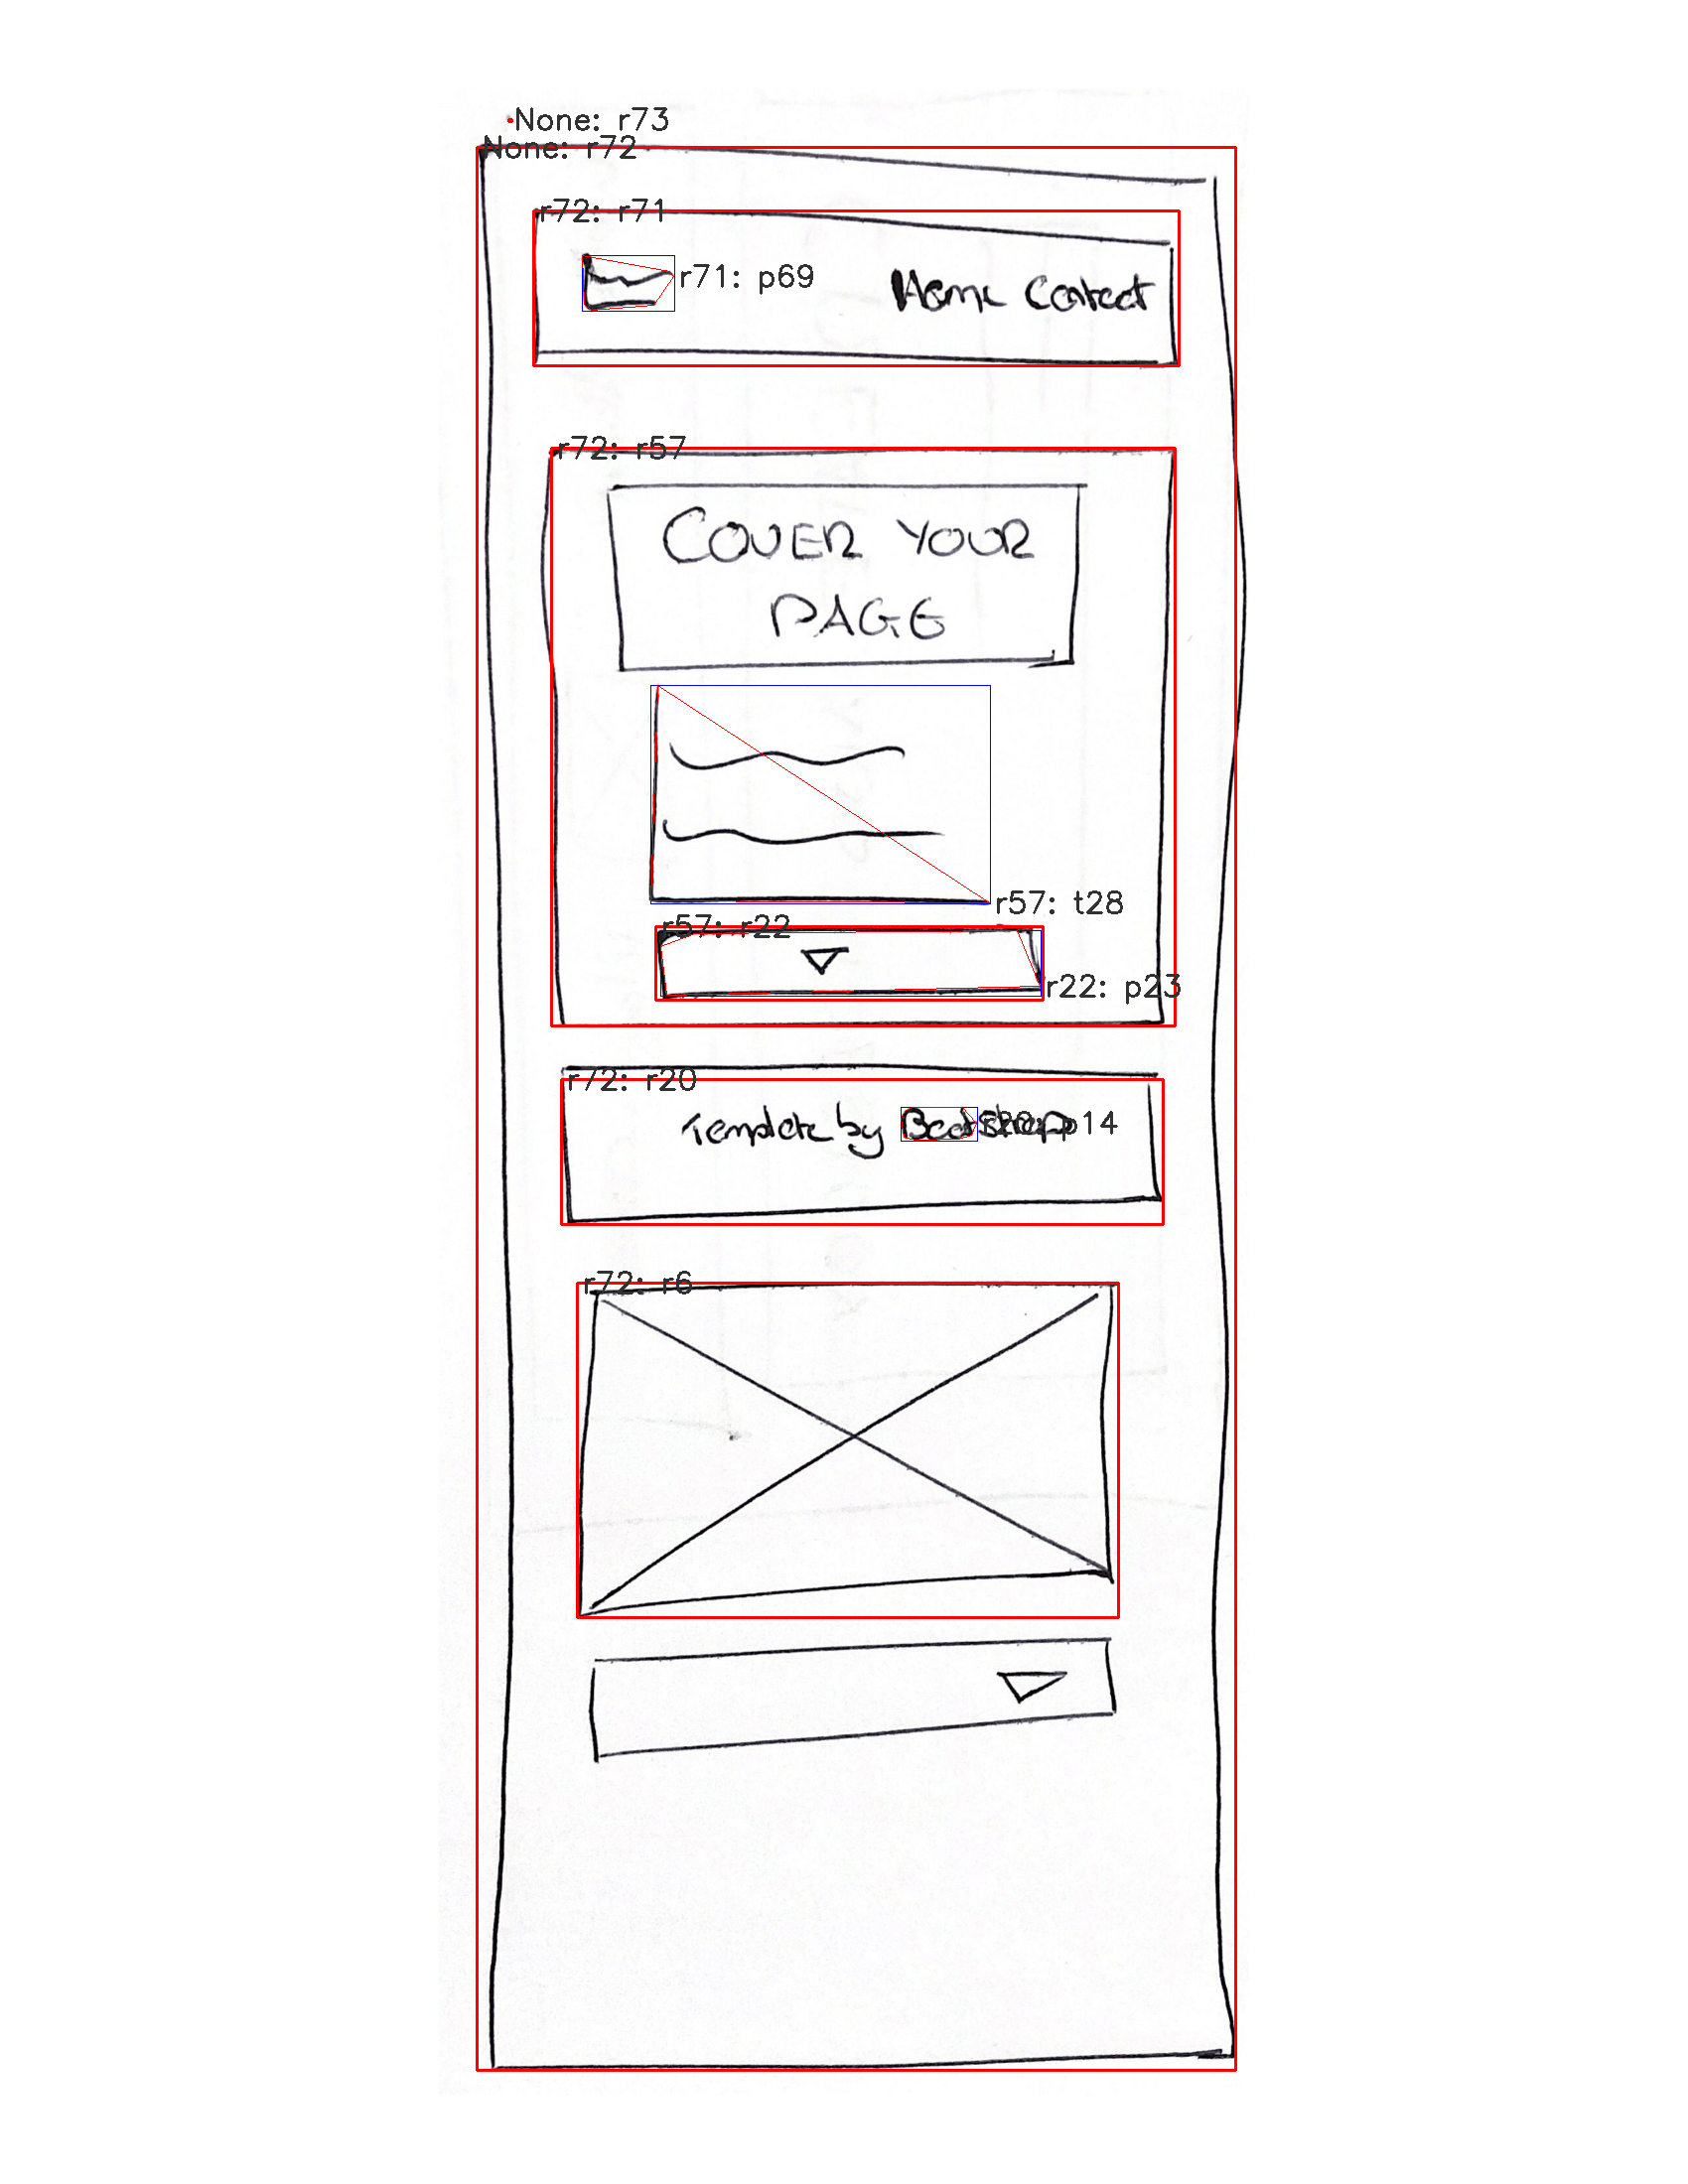 None: r73
None: r72
r72: r71
r71: p69
Home Contact
r72: r57
COVER YOUR
PAGE
r57: t28
r57: r22
r22: p23
r72: r20
Template by Bootstrap p14
r72: r6